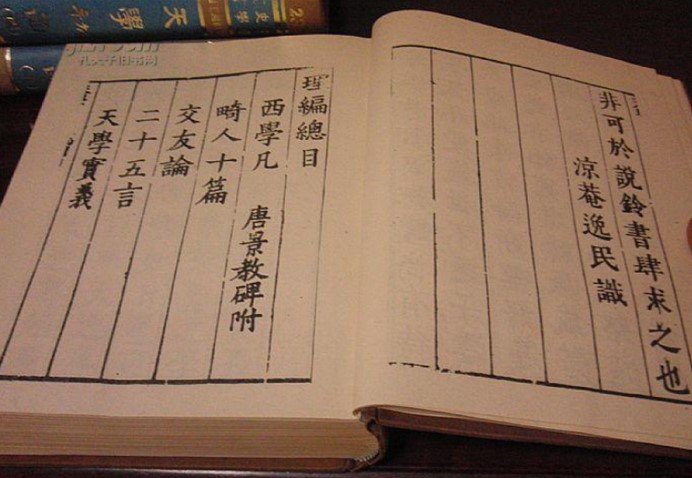 非可於說鈴書肆求之也
涼菴逸民識
理編總目
西學凡　唐景教碑附
畸人十篇
交友論
二十五言
天學實義
天學
孔夫子旧书网